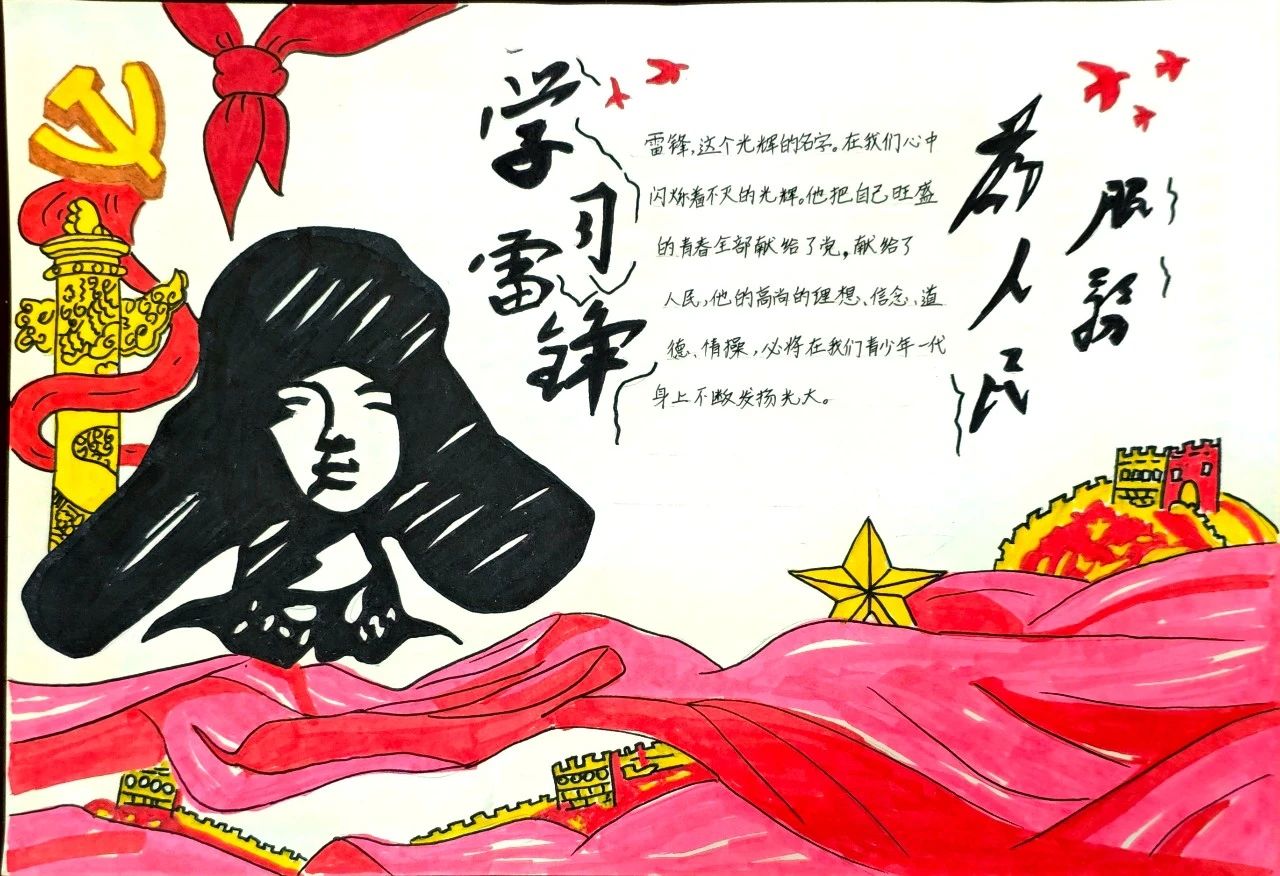 学习
雷锋
雷锋,这个光辉的名字。在我们心中
闪烁着不灭的光辉。他把自己旺盛
的青春全部献给了党,献给了
人民,他的高尚的理想、信念、道
德、情操,必将在我们青少年一代
身上不断发扬光大。
为人民
服务